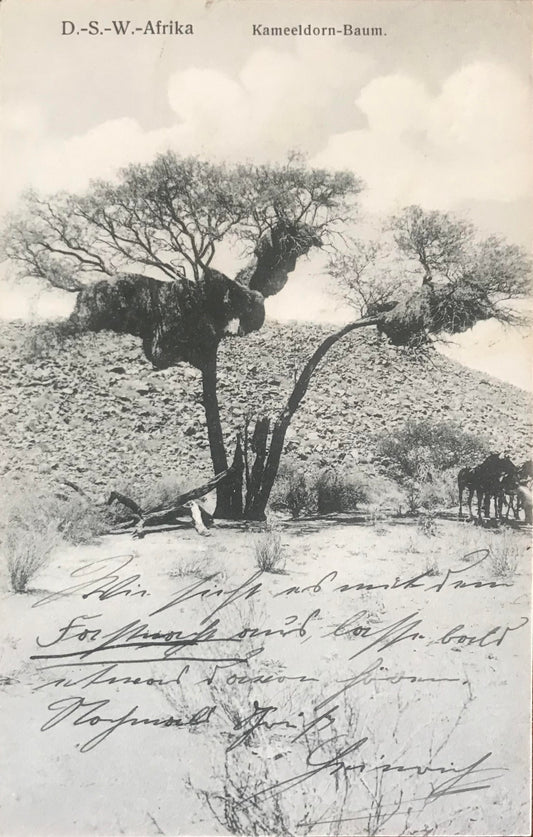 D.-S.-W.-Afrika Kameeldorn-Baum.
Wie sieht es mit dem
aus, lasse bald
etwas davon hören.
Nochmals Gruß
Heinrich